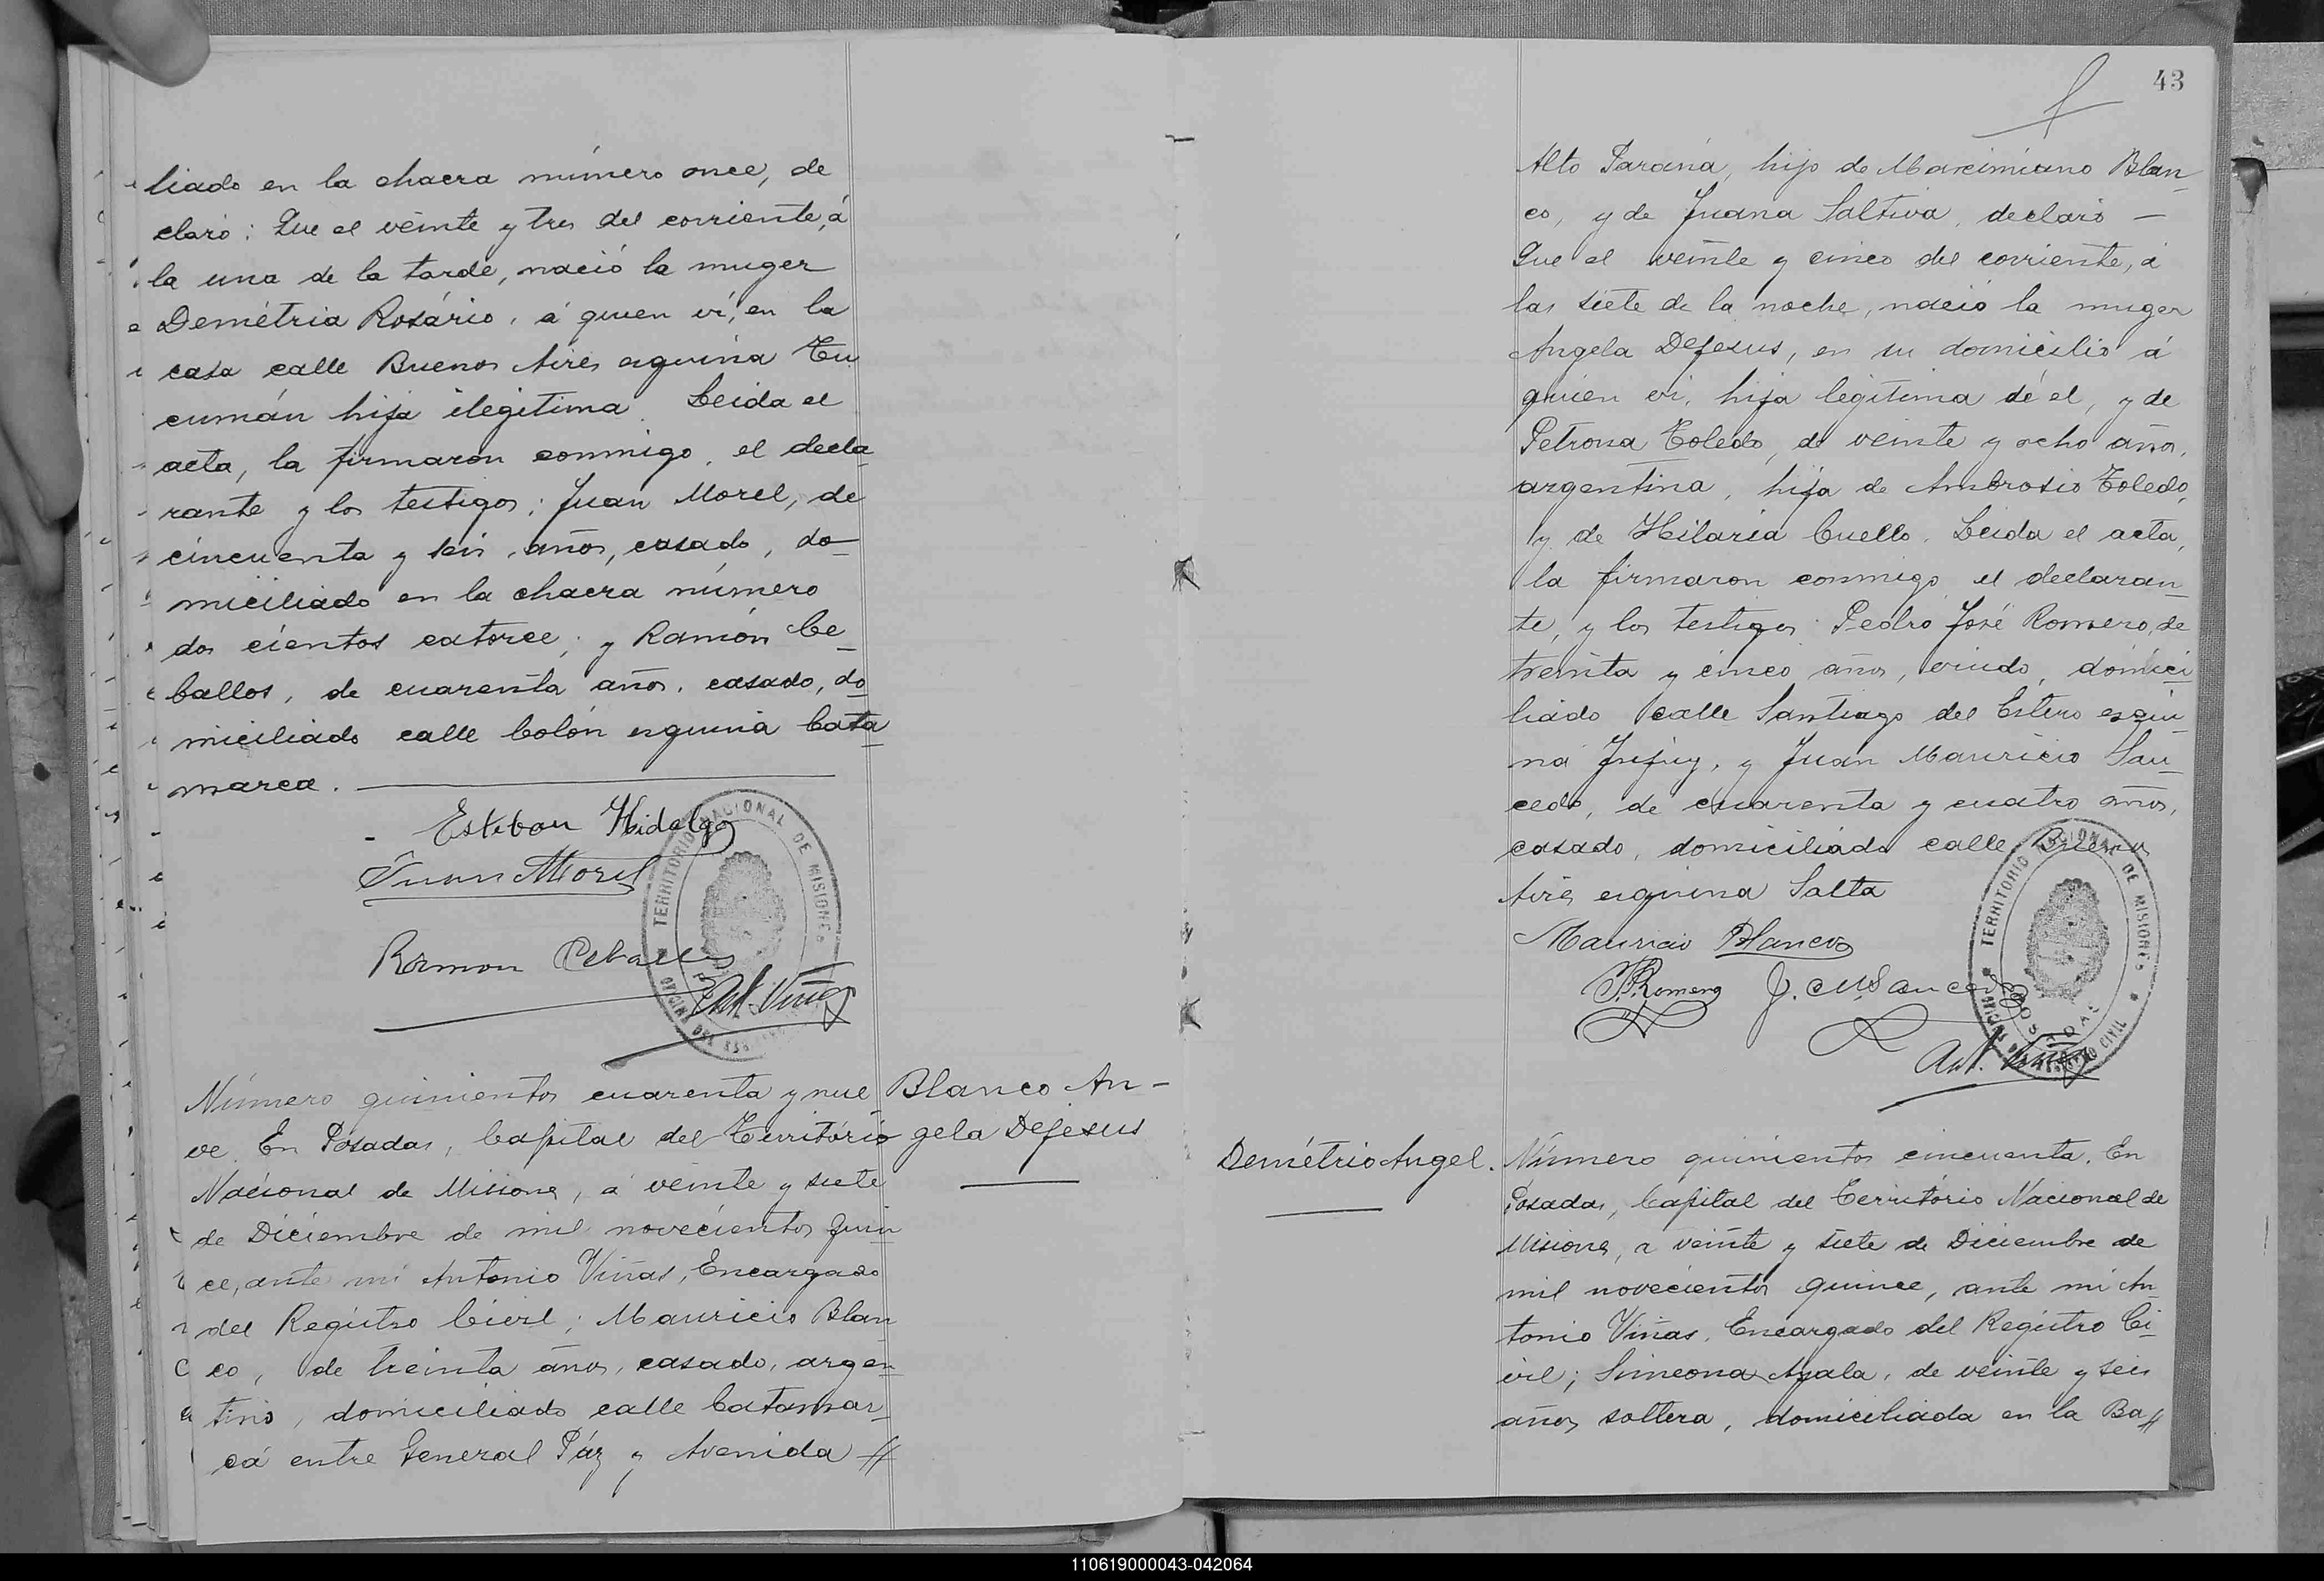 liado en la chacra número once, de
claró: Que el veinte y tres del corriente, á
la una de la tarde, nació la muger
Demétria Rosário, á quien ví, en la
casa calle Buenos Aires esquina Tu
cumán hija ilegitima. Leida el
acta, la firmaron conmigo, el decla-
rante y los testigos; Juan Morel, de
cincuenta y seis años, casado, do-
miciliado en la chacra número
dos cientos catorce; y Ramón Ce-
ballos, de cuarenta años, casado, do
miciliado calle Colón esquina Cata
marca.
Esteban Hidalgo
Juan Morel
Ramon Ceballos
Ant. Viñas
TERRITORIO NACIONAL DE MISIONES
Número quinientos cuarenta y nue
ve. En Posadas, Capital del Território
Nacional de Misiones, á veinte y siete
de Diciembre de mil novecientos quin
ce, ante mí Antonio Viñas, Encargado
del Registro Civil; Mauricio Blan
co, de treinta años, casado, argen
tino, domiciliado calle Catamar-
ca entre General Páz y Avenida //
Blanco An-
gela Dejesus
43
Alto Paraná, hijo de Marcimiano Blan-
co, y de Juana Saltiva, declaró —
Que el veinte y cinco del corriente, á
las siete de la noche, nació la muger
Angela Dejesus, en su domicilio á
quien ví, hija legitima de él, y de
Petrona Toledo, de veinte y ocho años,
argentina, hija de Ambrosio Toledo,
y de Hilaria Cuello. Leida el acta,
la firmaron conmigo el declaran-
te, y los testigos Pedro José Romero, de
treinta y cinco años, viudo, domici
liado calle Santiago del Estero esqui-
na Jujuy, y Juan Mauricio Sau-
cedo, de cuarenta y cuatro años,
casado, domiciliado calle Buenos
Aires esquina Salta
Mauricio Blanco
P.J. Romero J. M. Saucedo
Ant. Viñas
TERRITORIO NACIONAL DE MISIONES
POSADAS
REGISTRO CIVIL
Demétrio Angel.
Número quinientos cincuenta. En
Posadas, Capital del Território Nacional de
Misiones, a veinte y siete de Diciembre de
mil novecientos quince, ante mí An
tonio Viñas, Encargado del Registro Ci-
vil; Simeona Ayala, de veinte y seis
años, soltera, domiciliada en la Ba//
110619000043-042064